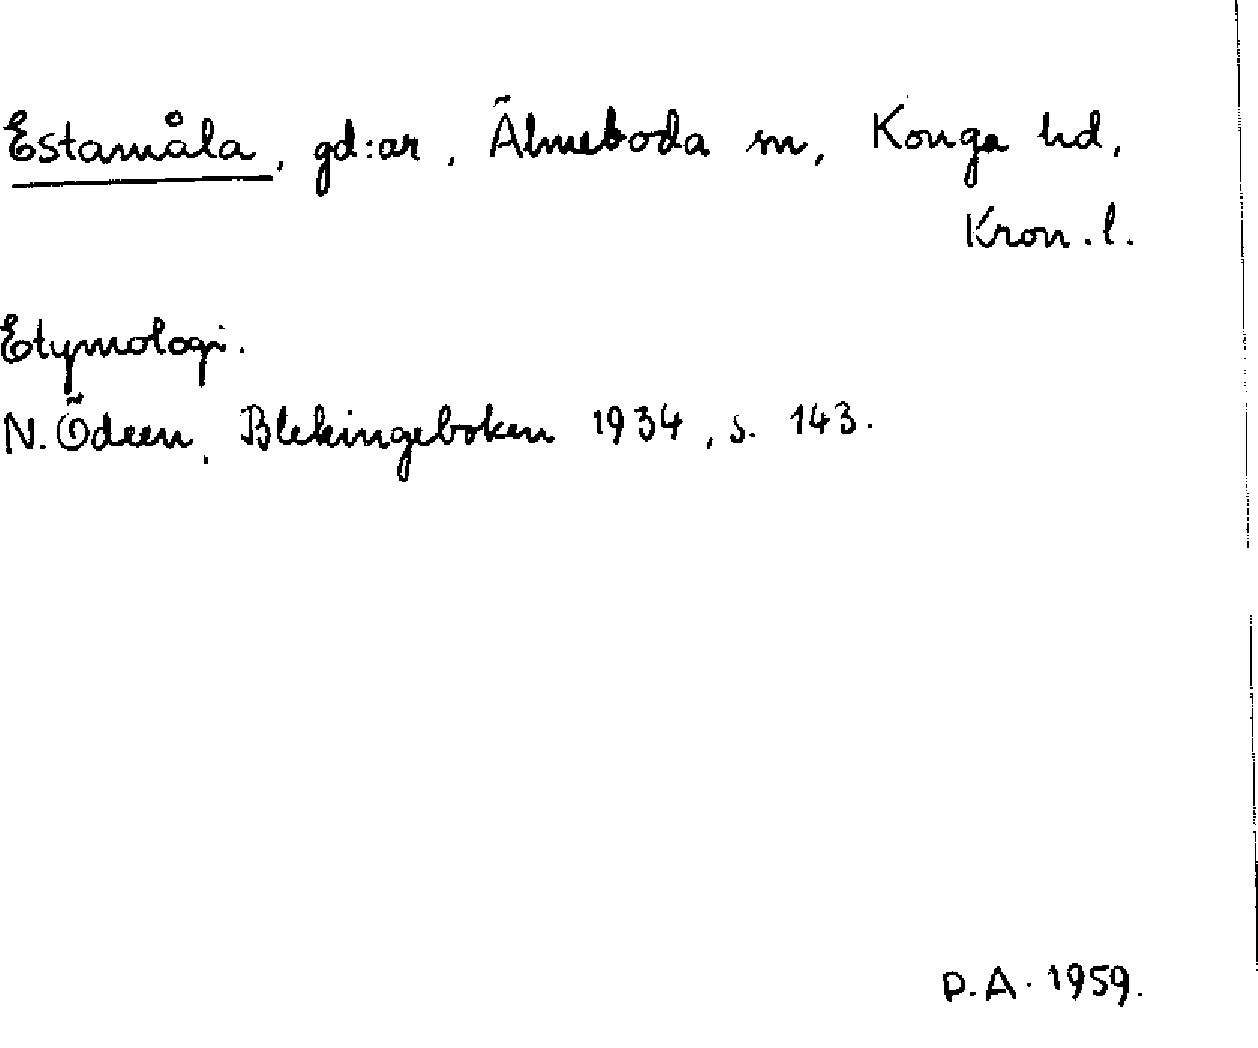 Estamåla, gd:ar, Älmeboda sn, Konga hd,
Kron.l.
Etymologi.
N. Ödeen, Blekingeboken 1934, s. 143.
D.A. 1959.